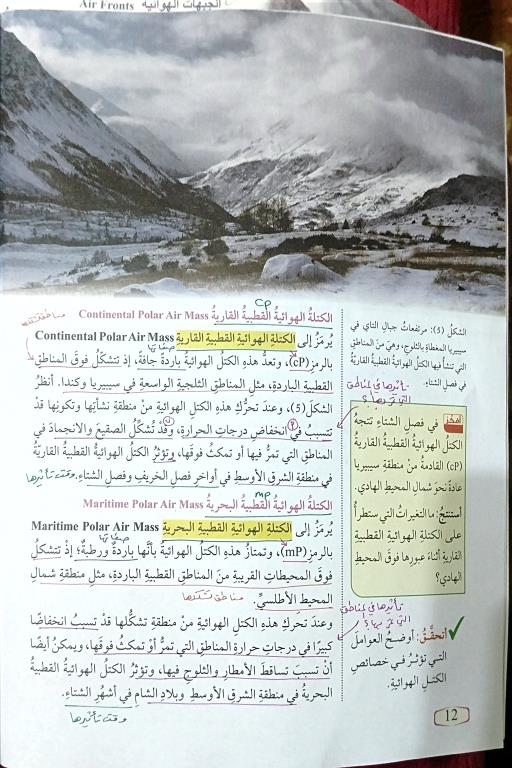 الجبهات الهوائية Air Fronts
cP
الكتلةُ الهوائيةُ القطبيةُ القاريةُ Continental Polar Air Mass
يُرمَزُ إلى الكتلةِ الهوائيةِ القطبيةِ القاريةِ Continental Polar Air Mass
صفاتها
بالرمزِ (cP)، وتعدُّ هذهِ الكتلُ الهوائيةُ باردةً جافةً، إذْ تتشكّلُ فوقَ المناطقِ
القطبيةِ الباردةِ، مثلِ المناطقِ الثلجيةِ الواسعةِ في سيبيريا وكندا. أنظرُ
الشكلَ (5)، وعندَ تحرُّكِ هذهِ الكتلِ الهوائيةِ منْ منطقةِ نشأتِها وتكونِها قدْ
تتسببُ في انخفاضِ درجاتِ الحرارةِ، وقدْ تُشكّلُ الصقيعَ والانجمادَ في
المناطقِ التي تمرُّ فيها أو تمكثُ فوقَها، وتؤثرُ الكتلُ الهوائيةُ القطبيةُ القاريّةُ
في منطقةِ الشرقِ الأوسطِ في أواخرِ فصلِ الخريفِ وفصلِ الشتاءِ.
وقت تأثيرها
mP
الكتلةُ الهوائيةُ القطبيةُ البحريةُ Maritime Polar Air Mass
يُرمَزُ إلى الكتلةِ الهوائيةِ القطبيةِ البحريةِ Maritime Polar Air Mass
صفاتها
بالرمزِ (mP)، وتمتازُ هذهِ الكتلُ الهوائيةُ بأنَّها باردةٌ ورطبةٌ؛ إذْ تتشكلُ
فوقَ المحيطاتِ القريبةِ منَ المناطقِ القطبيةِ الباردةِ، مثلِ منطقةِ شمالِ
المحيطِ الأطلسيِّ.
مناطق تشكلها
وعندَ تحركِ هذهِ الكتلِ الهوائيةِ منْ منطقةِ تشكُّلِها قدْ تسببُ انخفاضًا
كبيرًا في درجاتِ حرارةِ المناطقِ التي تمرُّ أوْ تمكثُ فوقَها، ويمكنُ أيضًا
أنْ تسببَ تساقطَ الأمطارِ والثلوجِ فيها، وتؤثرُ الكتلُ الهوائيةُ القطبيةُ
البحريةُ في منطقةِ الشرقِ الأوسطِ وبلادِ الشامِ في أشهرِ الشتاءِ.
وقت تأثيرها
الشكلُ (5): مرتفعاتُ جبالِ التاي في
سيبيريا المغطاةِ بالثلوجِ، وهيَ منَ المناطقِ
التي تنشأُ فيها الكتلُ الهوائيةُ القطبيةُ القاريّةُ
في فصلِ الشتاءِ.
تأثيرها في المناطق
التي تمر بها؟
أفكّر في فصلِ الشتاءِ تتجهُ
الكتلُ الهوائيةُ القطبيةُ القاريةُ
(cP) القادمةُ منْ منطقةِ سيبيريا
عادةً نحوَ شمالِ المحيطِ الهادي.
أستنتجُ: ما التغيراتُ التي ستطرأُ
على الكتلةِ الهوائيةِ القطبيةِ
القاريةِ أثناءَ عبورِها فوقَ المحيطِ
الهادي؟
تأثيرها في المناطق
التي تمر بها؟
أتحقَّقُ: أوضحُ العواملَ
التي تؤثرُ في خصائصِ
الكتلِ الهوائيةِ.
12